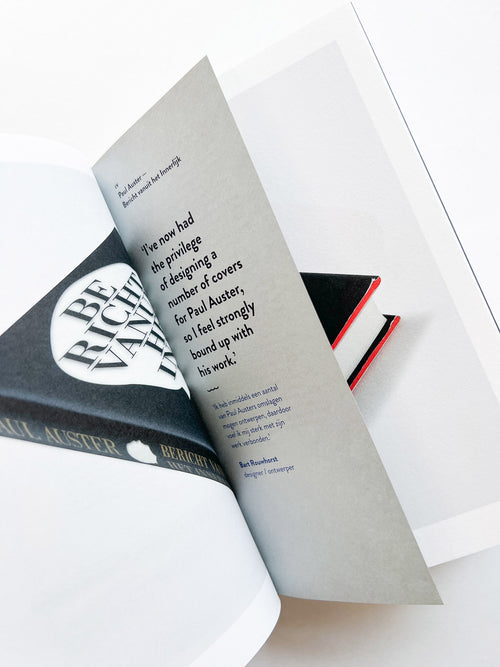 BE
RICHT
VAN
PAUL AUSTER
BERICHT VAN
HET
Paul Auster —
Bericht vanuit het Innerlijk
'I've now had
the privilege
of designing a
number of covers
for Paul Auster,
so I feel strongly
bound up with
his work.'
'Ik heb inmiddels een aantal
van Paul Austers omslagen
mogen ontwerpen, daardoor
voel ik mij sterk met zijn
werk verbonden.'
Bart Rouwhorst
designer | ontwerper